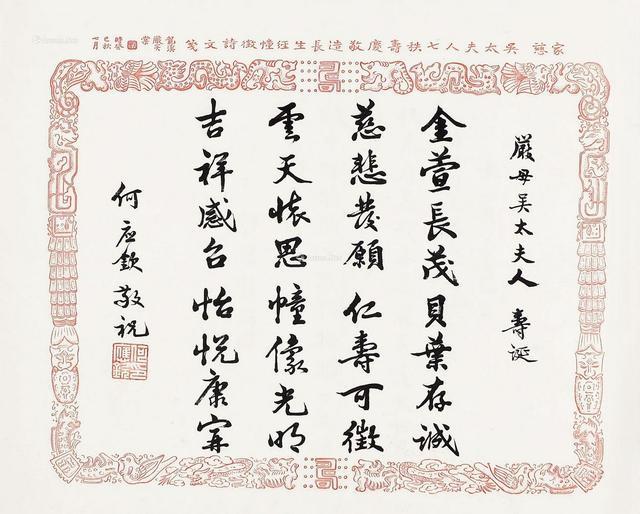 家慈吳太夫人七秩壽慶敬造長生經幢徵詩文箋
嚴母吳太夫人 壽誕
金萱長茂貝葉存誠
慈悲發願仁壽可徵
雲天懷思幢像光明
吉祥感召怡悅康寧
何應欽敬祝